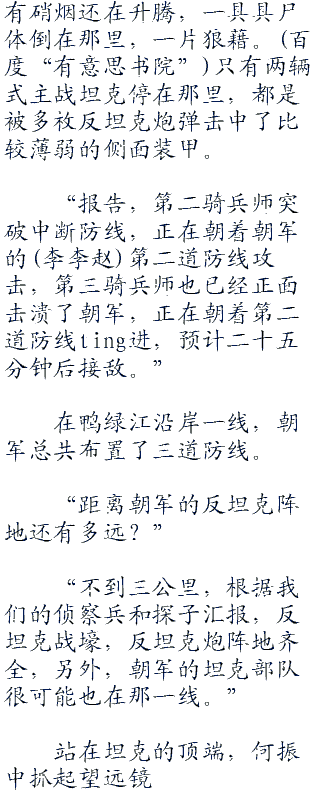 有硝烟还在升腾，一具具尸
体倒在那里，一片狼藉。(百
度“有意思书院”)只有两辆
式主战坦克停在那里，都是
被多枚反坦克炮弹击中了比
较薄弱的侧面装甲。
“报告，第二骑兵师突
破中断防线，正在朝着朝军
的(李李赵)第二道防线攻
击，第三骑兵师也已经正面
击溃了朝军，正在朝着第二
道防线ting进，预计二十五
分钟后接敌。”
在鸭绿江沿岸一线，朝
军总共布置了三道防线。
“距离朝军的反坦克阵
地还有多远？”
“不到三公里，根据我
们的侦察兵和探子汇报，反
坦克战壕，反坦克炮阵地齐
全，另外，朝军的坦克部队
很可能也在那一线。”
站在坦克的顶端，何振
中抓起望远镜